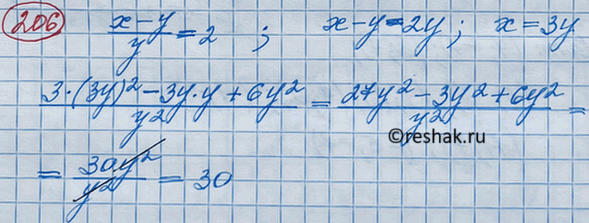 206 (x-y)/y = 2 ; x-y=2y ; x=3y
(3·(3y)²-3y·y+6y²)/y² = (27y²-3y²+6y²)/y² =
©reshak.ru
= 30y²/y² = 30